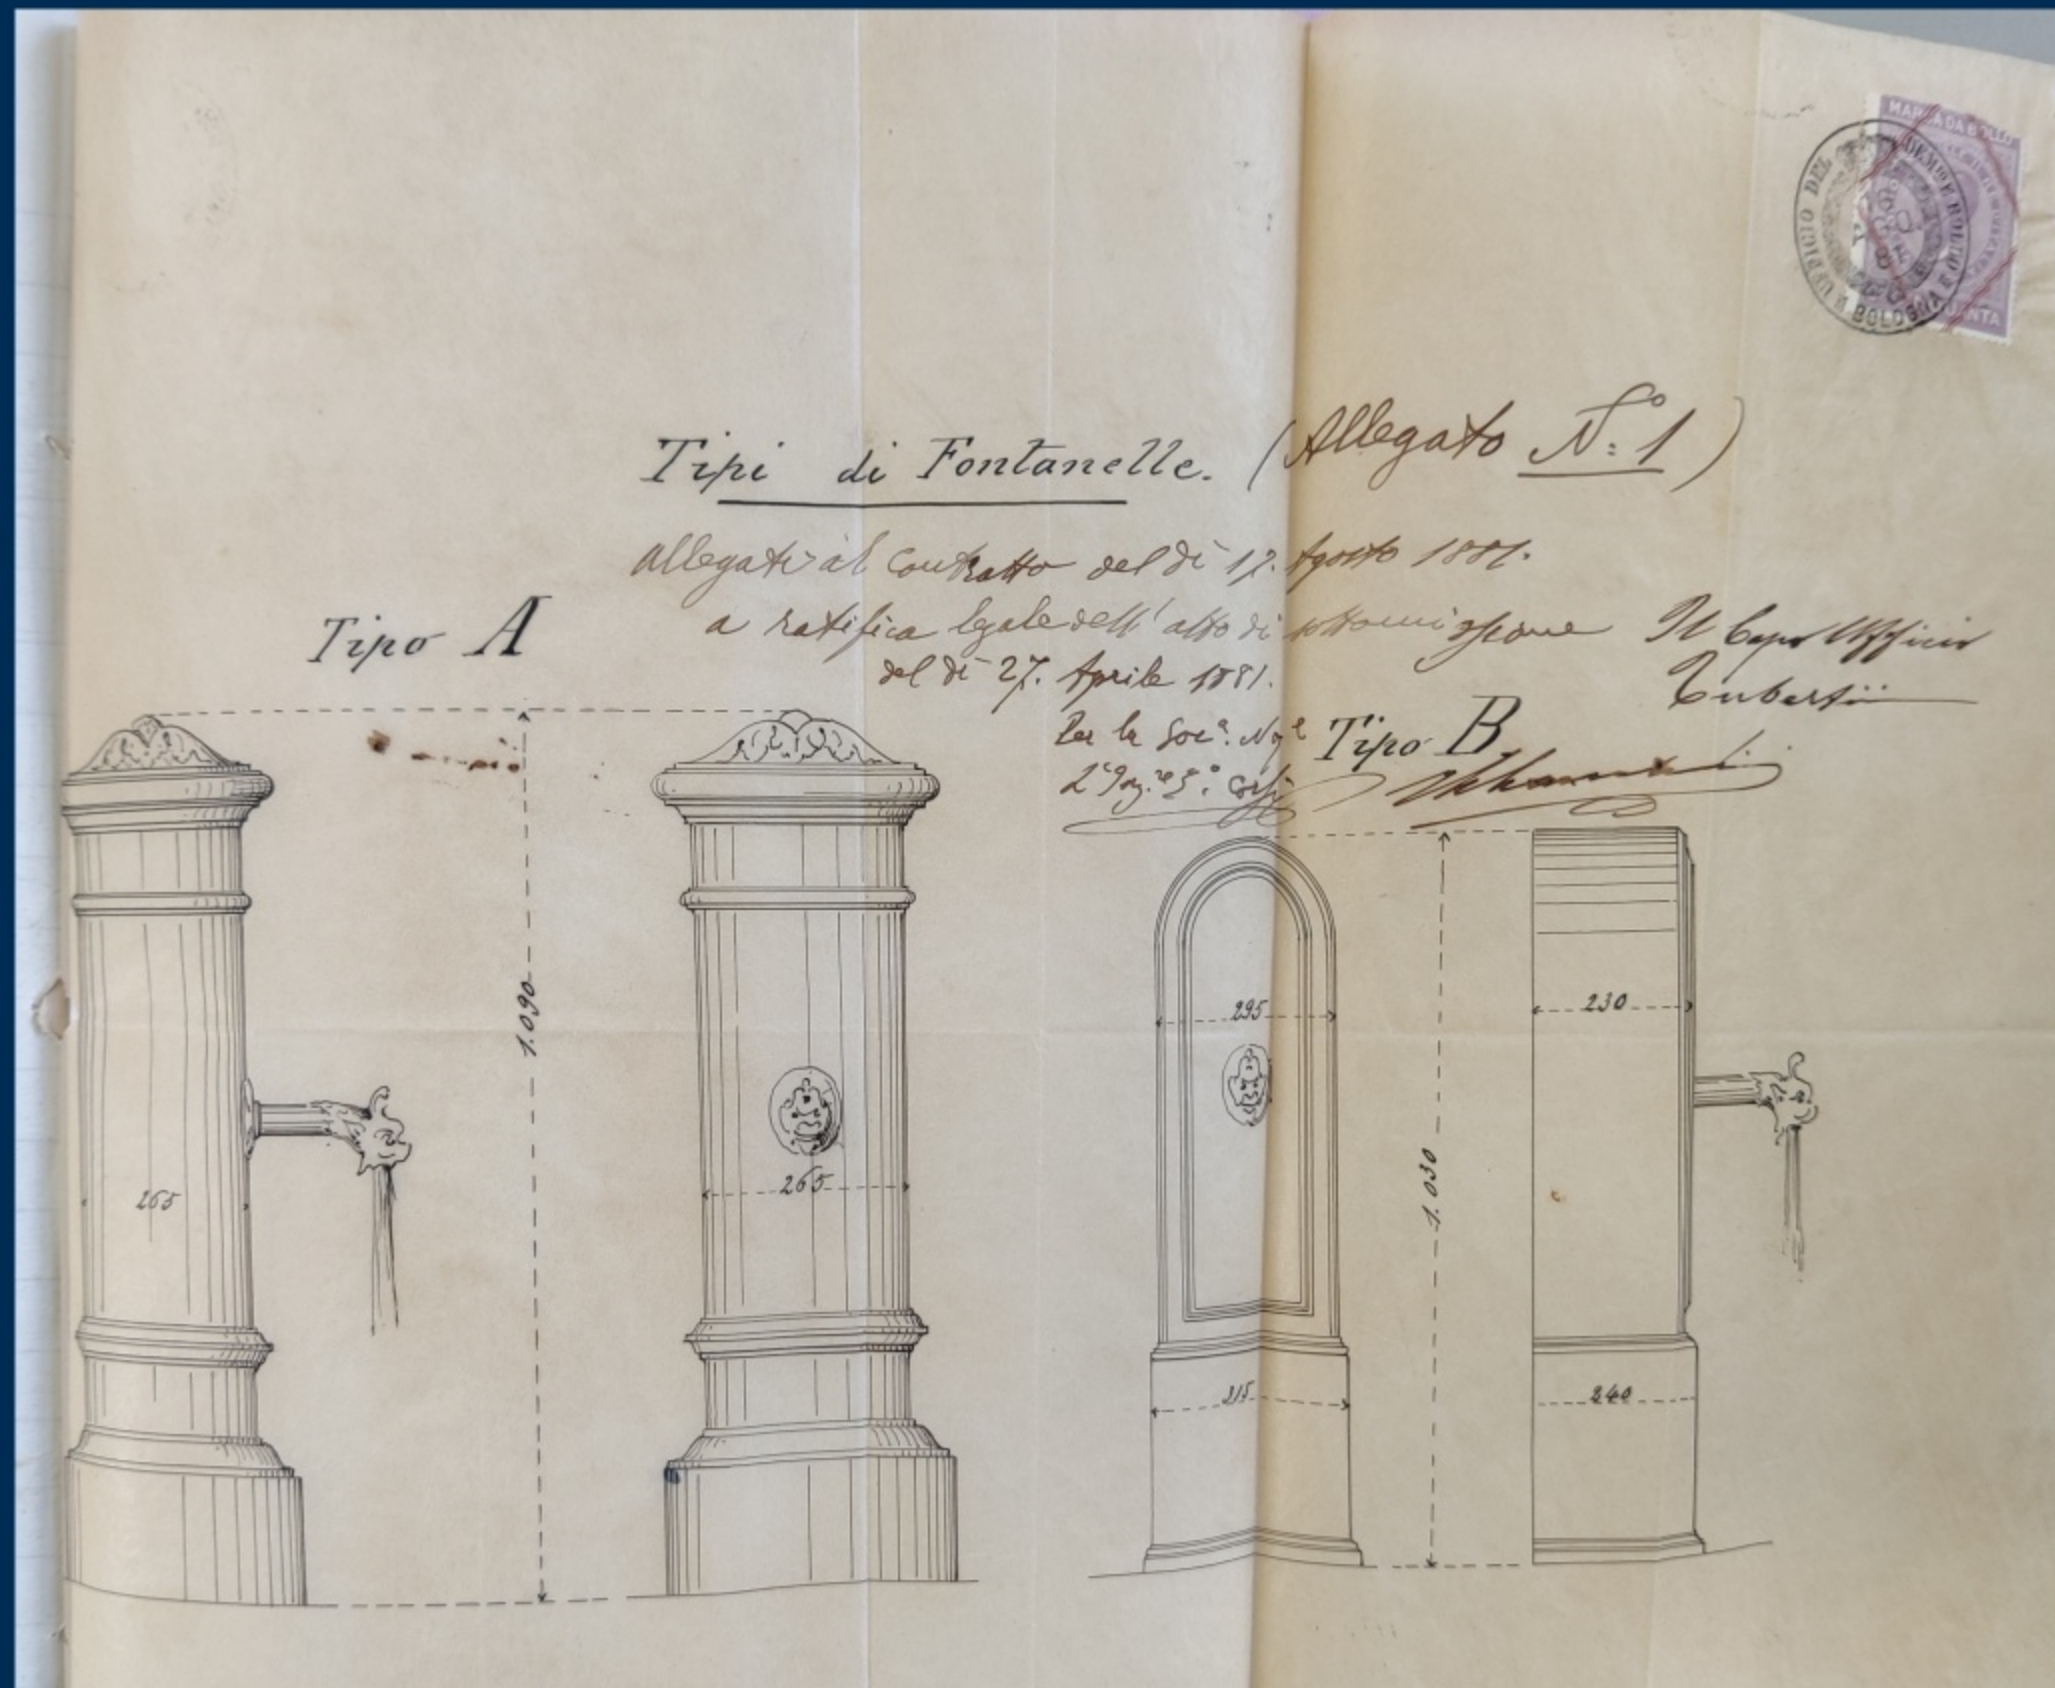 MARCA DA BOLLO
UFFICIO DEL
BOLOGNA
Tipi di Fontanelle. (Allegato Nº: 1)
allegati al contratto del dì 17. Agosto 1881.
a ratifica legale dell'atto di sottomissione
del dì 27. Aprile 1881.
Il Capo Ufficio
Tipo A
Per la Soc.ª
Tipo B
1.090
265
265
295
230
1.030
315
240